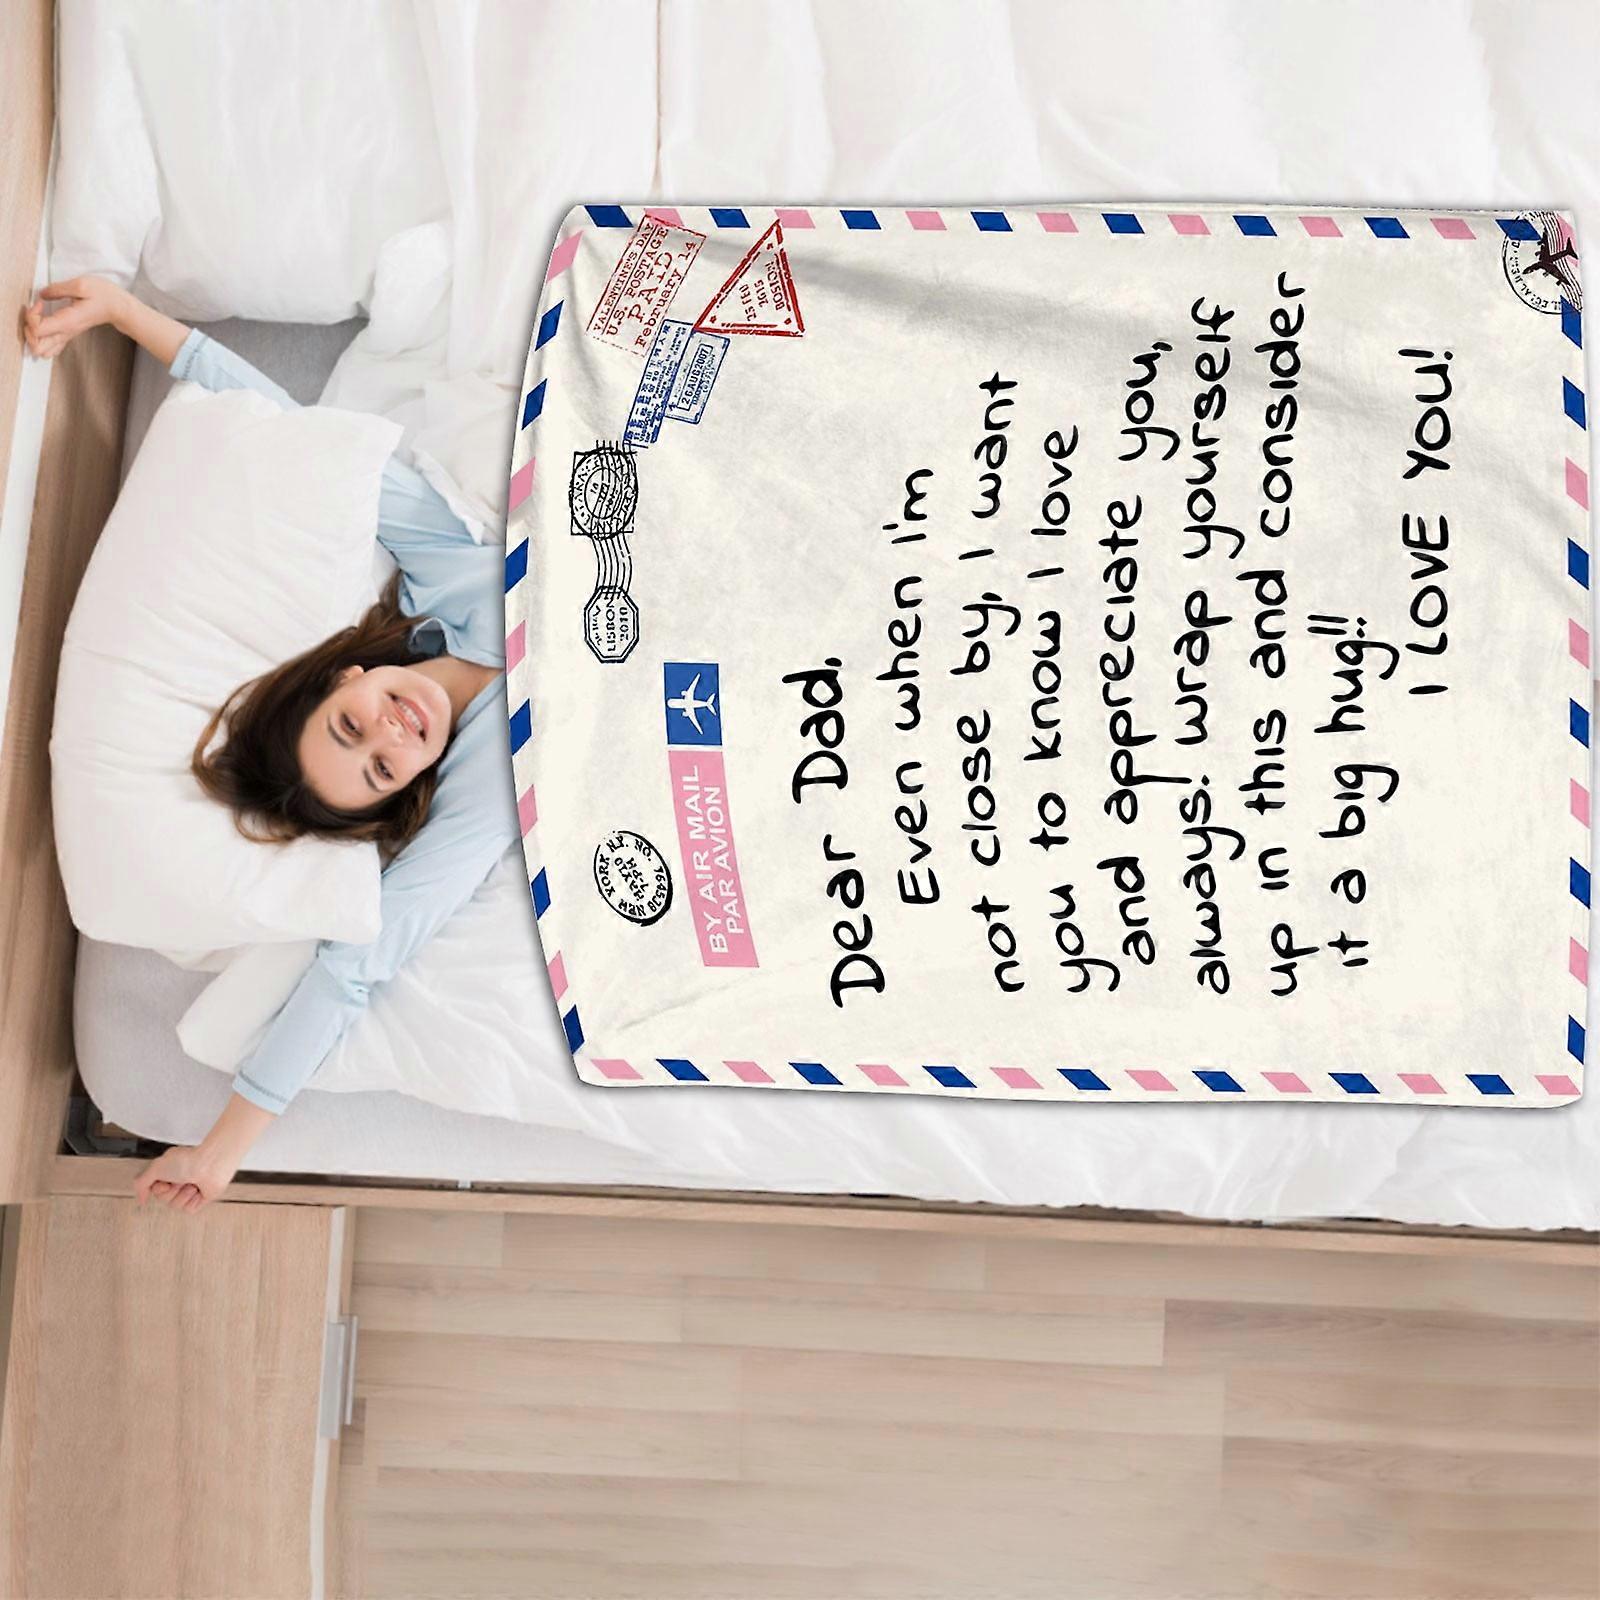 VALENTINE'S DAY
U.S. POSTAGE
PAID
February 14
25 FEB
2015
BOSTON
26 AUG 2007
LISBON
2010
NEW YORK N.Y. NO.
BY AIR MAIL
PAR AVION
Dear Dad,
Even when I'm
not close by, I want
you to know I love
and appreciate you,
always. wrap yourself
up in this and consider
it a big hug!!
I LOVE YOU!